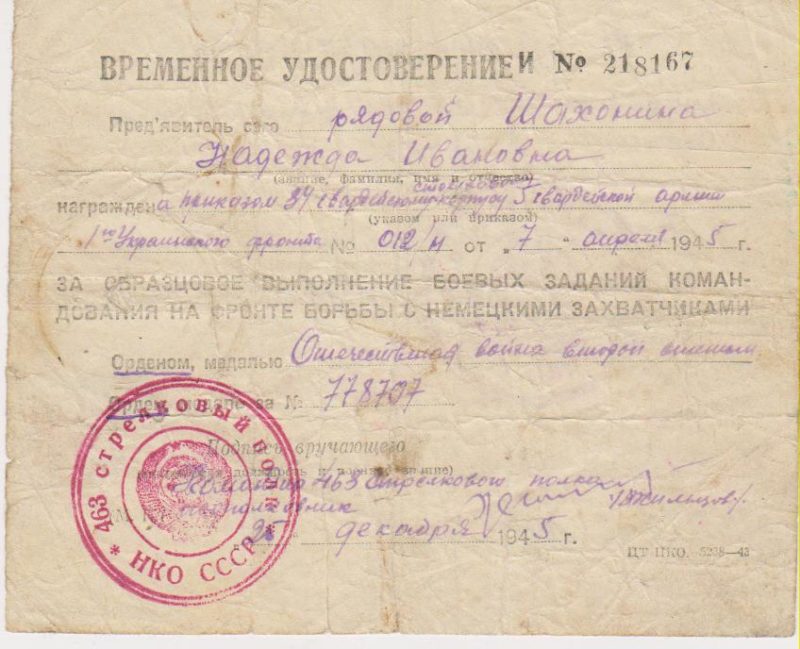 ВРЕМЕННОЕ УДОСТОВЕРЕНИЕ И № 218167
Пред'явитель сего рядовой Шахонина
Надежда Ивановна
(звание, фамилия, имя и отчество)
награждена приказом 34 гвардейского стрелкового корпуса 5 гвардейской армии
(указом или приказом)
1го Украинского фронта № 012/н от „7" апреля 1945 г.
ЗА ОБРАЗЦОВОЕ ВЫПОЛНЕНИЕ БОЕВЫХ ЗАДАНИЙ КОМАН-
ДОВАНИЯ НА ФРОНТЕ БОРЬБЫ С НЕМЕЦКИМИ ЗАХВАТЧИКАМИ
Орденом, медалью Отечественная война второй степени
Орден, медаль за № 778707
Подпись вручающего
должность и воинское звание)
Командир 463 стрелкового полка
подполковник /Жильцов/
декабря 1945 г.
ЦТ НКО. 5238—43
* 463 стрелковый полк * НКО СССР